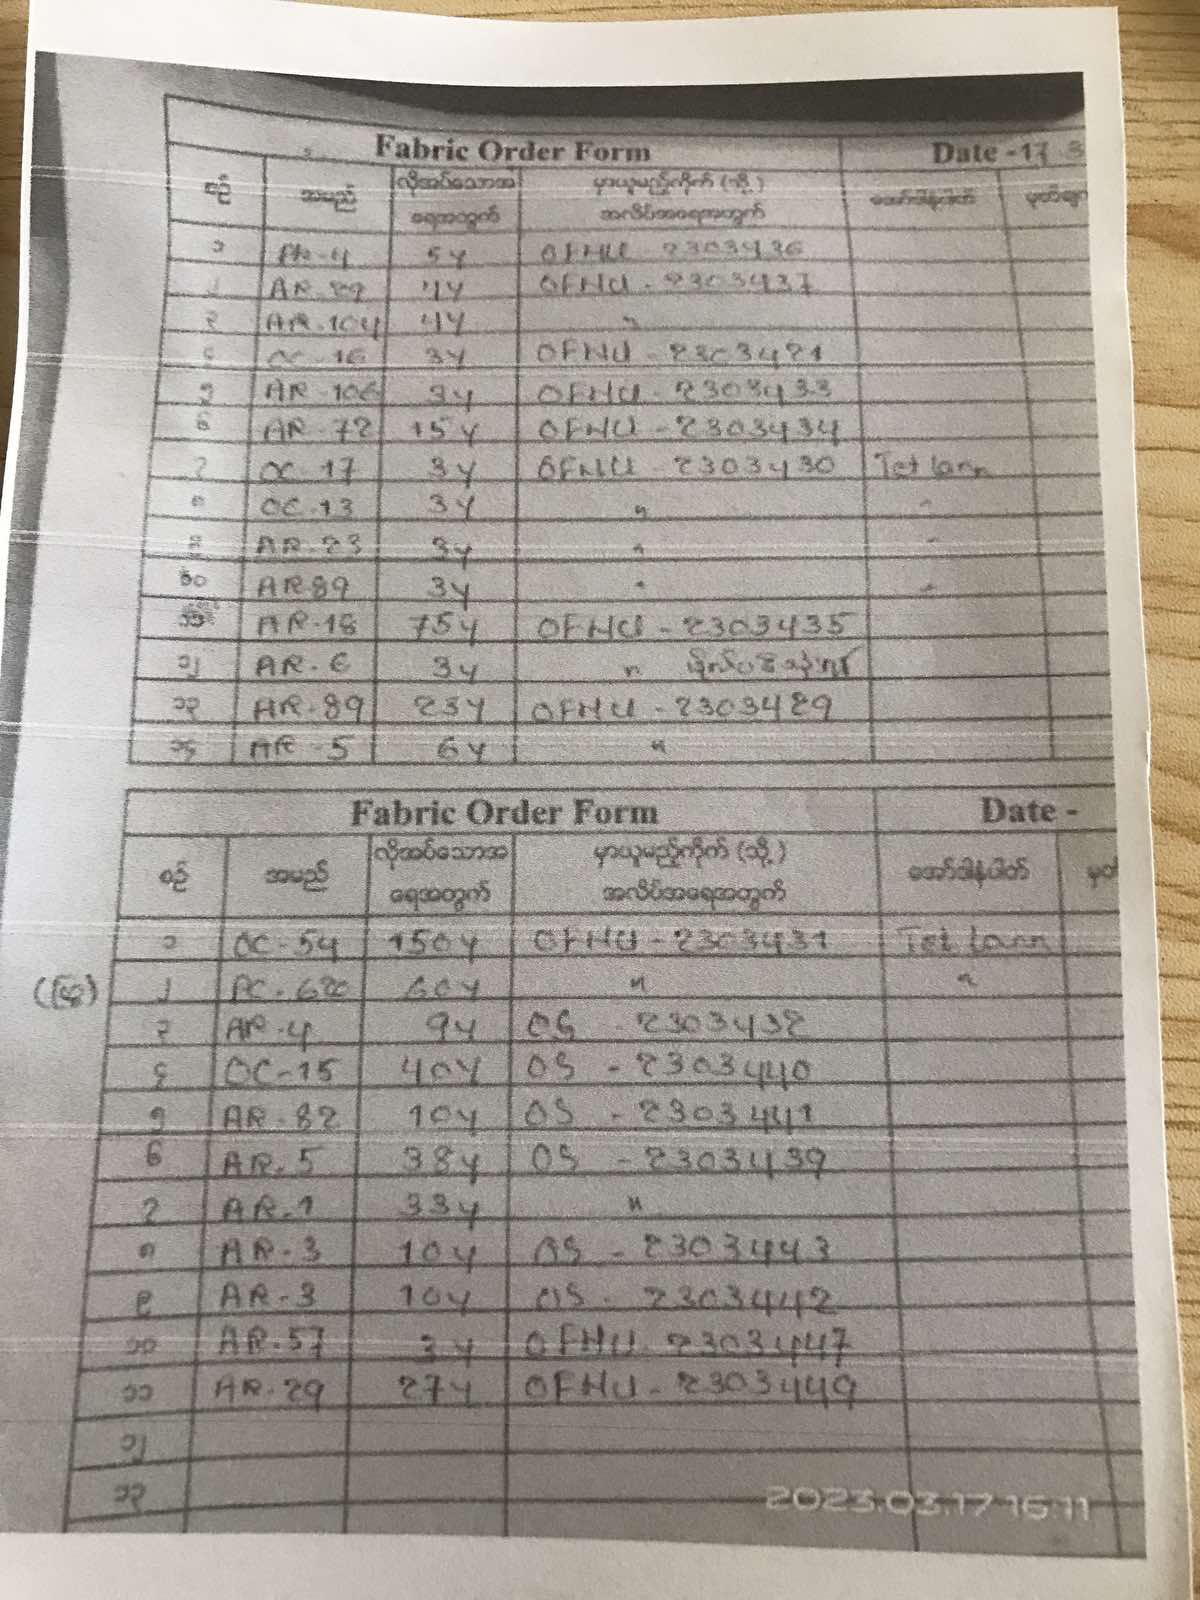 Fabric Order Form Date -17 3
စဉ် အမည် လိုအပ်သောအရေအတွက် မှာယူမည့်တိုက် (သို့) အလိပ်အရေအတွက် အော်ဒါနံပါတ်
၁ AR-4 5Y OFHU - 2303436
၂ AR-89 4Y OFHU - 2303437
၃ AR-104 4Y "
၄ OC-16 3Y OFHU - 2303421
၅ AR-106 3Y OFHU - 2303433
၆ AR-72 15Y OFHU - 2303434
၇ OC-17 3Y OFHU - 2303430 Tet lann
၈ OC-13 3Y " "
၉ AR-23 3Y " "
၁၀ AR89 3Y " "
၁၁ AR-18 75Y OFHU - 2303435
၁၂ AR-6 3Y "
၁၃ AR-89 23Y OFHU - 2303429
၁၄ AR-5 6Y "
Fabric Order Form Date -
စဉ် အမည် လိုအပ်သောအရေအတွက် မှာယူမည့်တိုက် (သို့) အလိပ်အရေအတွက် အော်ဒါနံပါတ်
၁ OC-54 150Y OFHU - 2303431 Tet lann
၂ 60Y " "
၃ AR-4 9Y OS - 2303432
၄ OC-15 40Y OS - 2303440
၅ AR-82 10Y OS - 2303441
၆ AR-5 38Y OS - 2303439
၇ AR-1 33Y "
၈ AR-3 10Y OS - 2303443
၉ AR-3 10Y OS - 2303442
၁၀ AR-57 3Y OFHU - 2303447
၁၁ AR-29 27Y OFHU - 2303449
၁၂
၁၃
2023.03.17 16:11